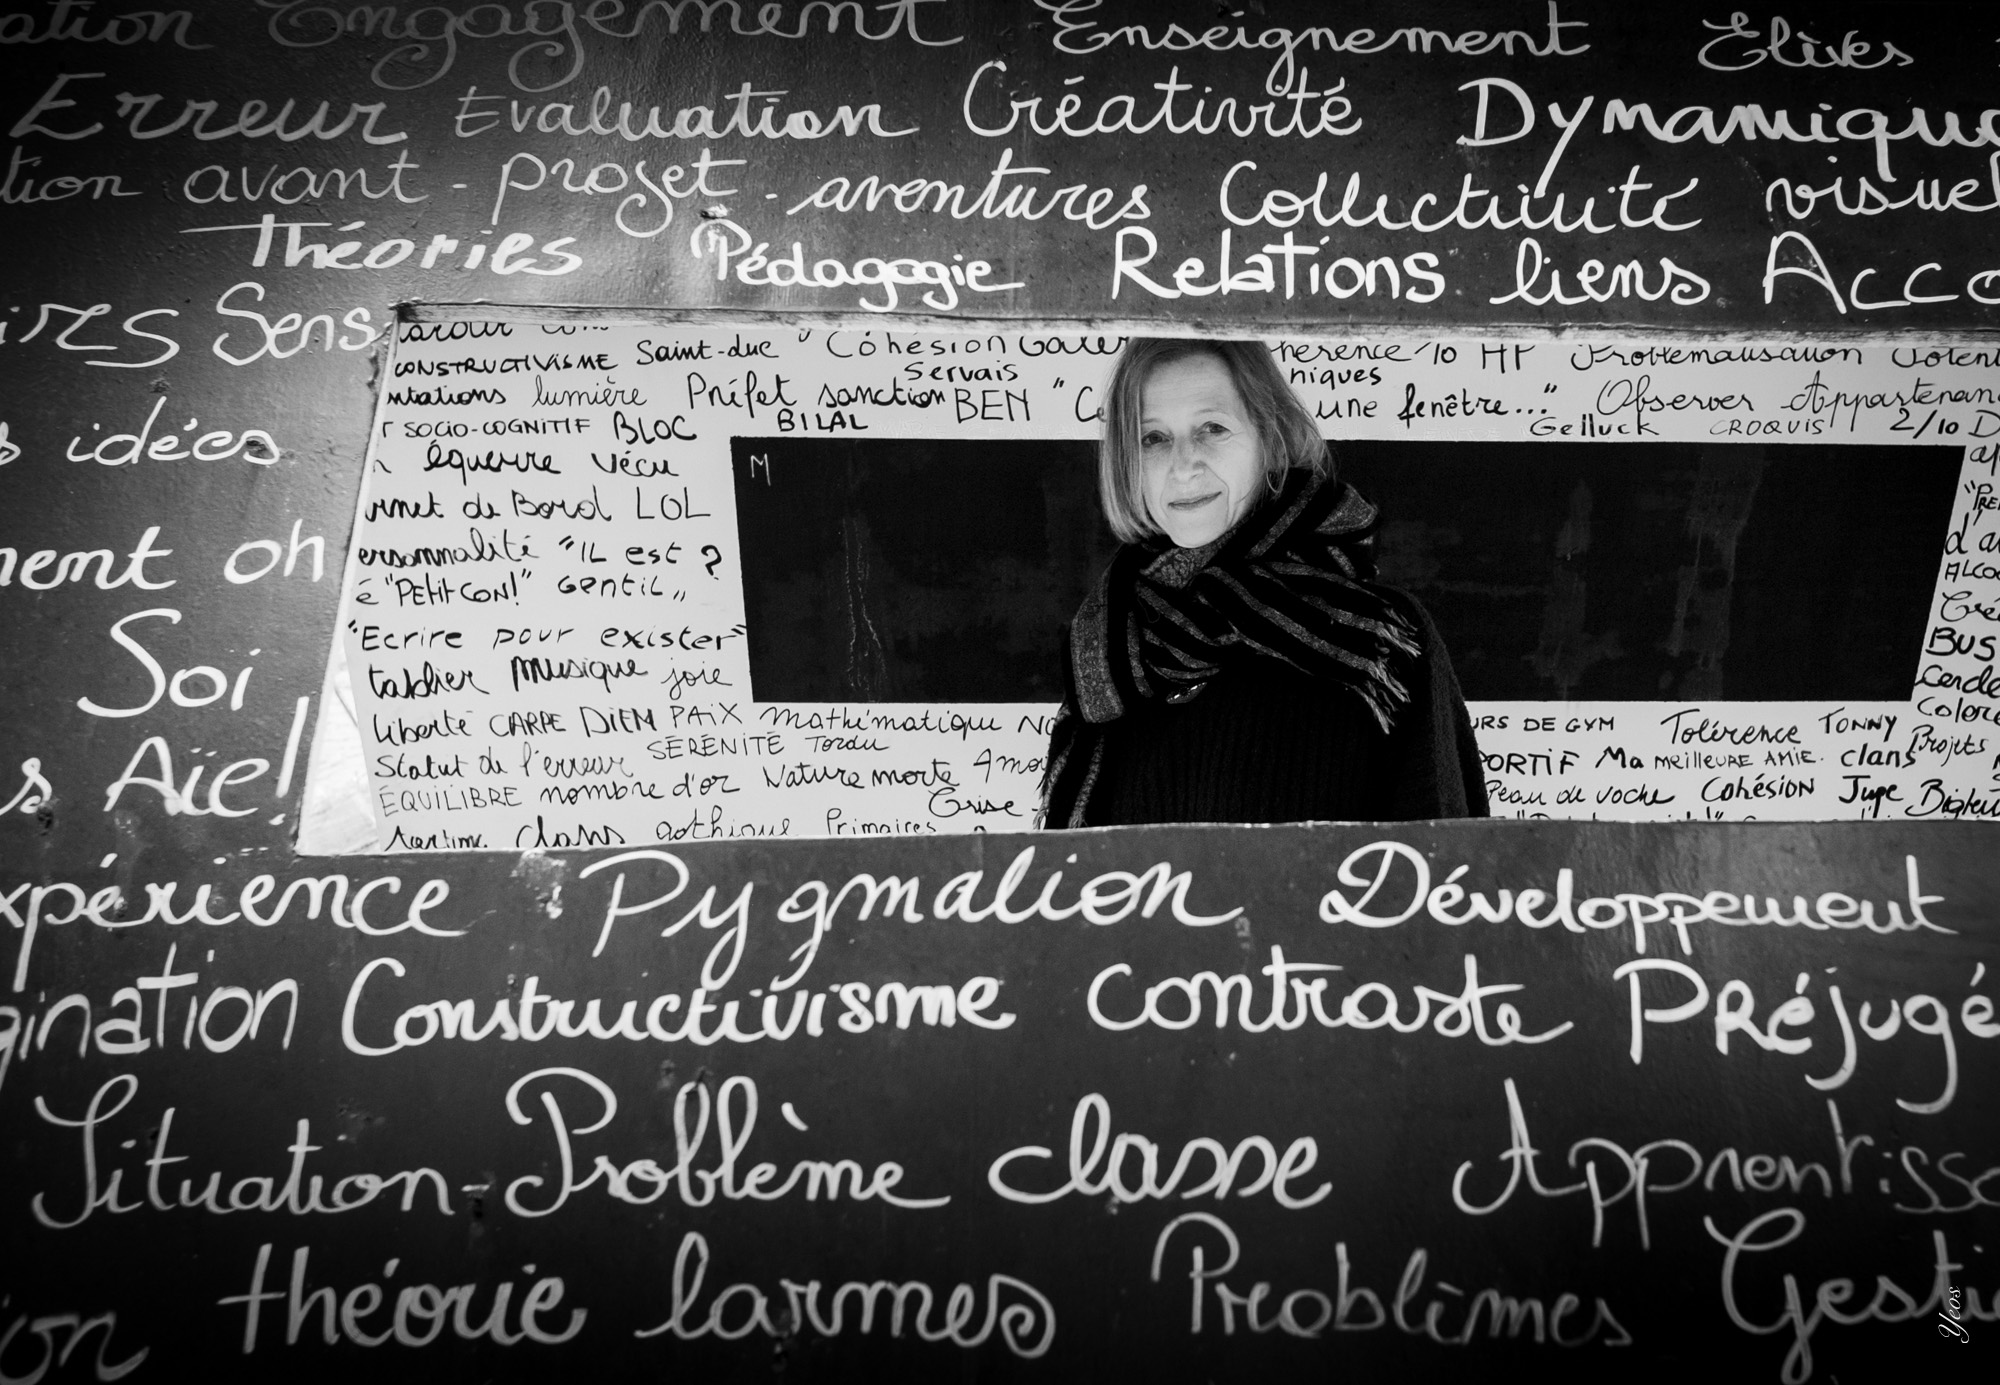 Engagement Enseignement Elèves
Erreur Evaluation Créativité Dynamique
avant-projet - aventures Collectivité visuel
Théories Pédagogie Relations liens Acco
Sens
CONSTRUCTIVISME Saint-luc Cohésion Galer herence 10 HP Problematisation
Servais niques
lumière Préfet sanction BEN "Ce une fenêtre..." Observer Appartenan
SOCIO-COGNITIF BLOC BILAL Gelluck CROQUIS 2/10
idées
équerre vécu M
rnet de Bord LOL "PRE
ersonnalité "IL est ? d'a
ment oh
é "PETIT CON!" Gentil„ ALCOO
"Ecrire pour exister" BUS
Soi
tablier musique joie Cerde
liberté CARPE DIEM PAIX mathématique NO URS DE GYM Tolérence TONNY Colore
Statut de l'erreur SÉRÉNITÉ Tordu PORTIF Ma MEILLEURE AMIE. clans Projets
s Aïe!
ÉQUILIBRE nombre d'or Nature morte Amou Peau de vache Cohésion Jupe
Crise
clans gothique Primaires
xpérience Pygmalion Développement
gination Constructivisme contraste Préjugé
Situation-Problème classe Apprentissa
théorie larmes Problèmes Gesti
Yeos